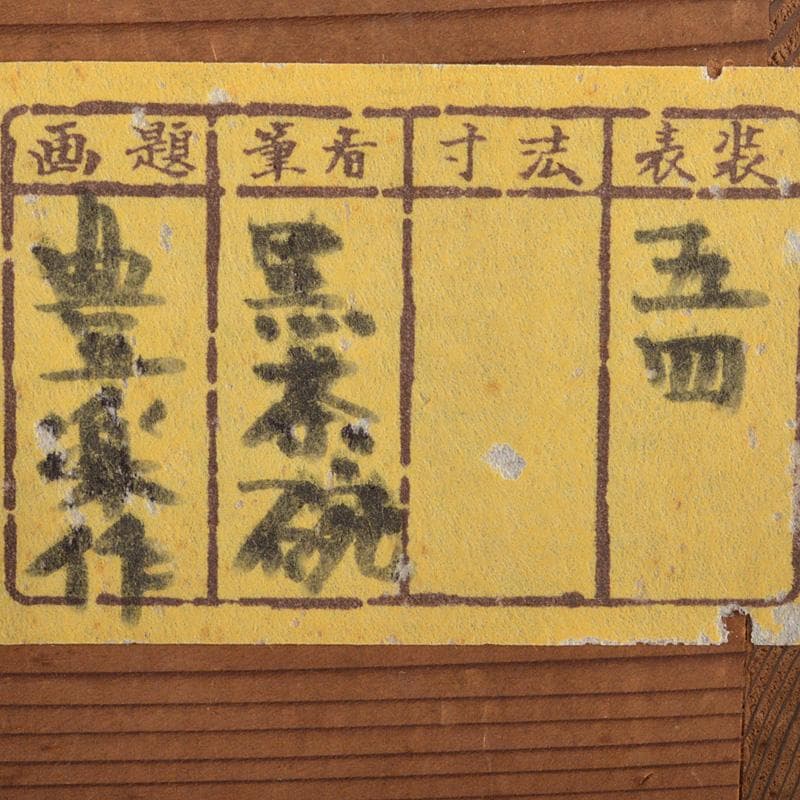 画題 筆者 寸法 表装
豊楽作
黒茶碗
五四